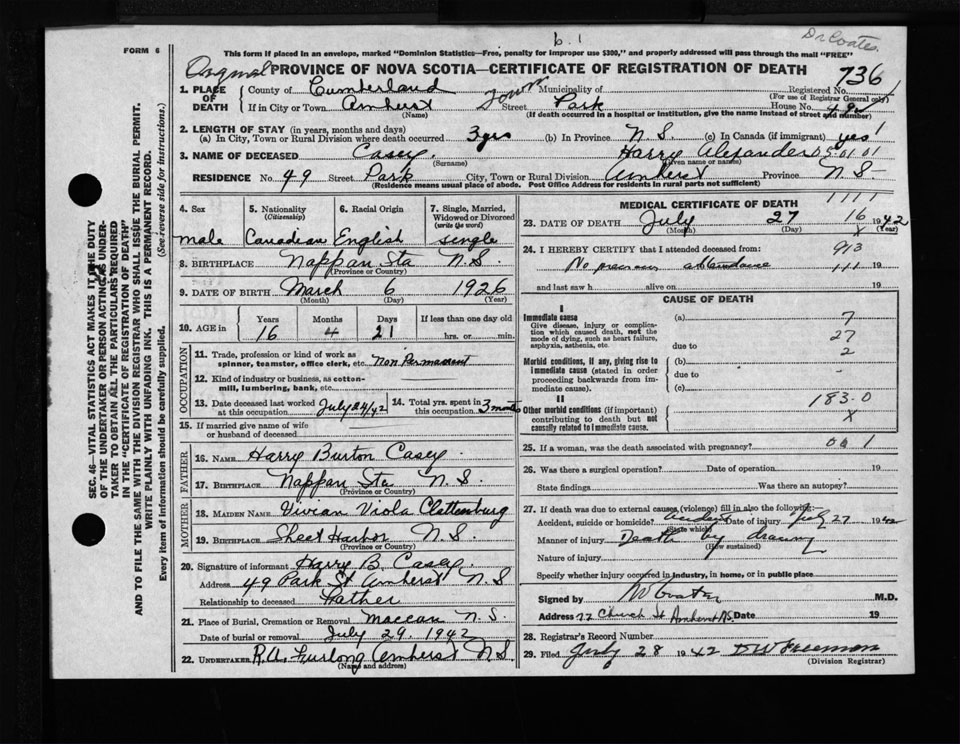 b.1
Dr Coates.
FORM 6
This form if placed in an envelope, marked "Dominion Statistics—Free, penalty for improper use $300," and properly addressed will pass through the mail "FREE"
Original PROVINCE OF NOVA SCOTIA—CERTIFICATE OF REGISTRATION OF DEATH 736
1. PLACE OF DEATH County of Cumberland Municipality of Registered No.
(For use of Registrar General only)
If in City or Town Amherst Town Street Park House No. 49
(Name) (If death occurred in a hospital or institution, give the name instead of street and number)
2. LENGTH OF STAY (in years, months and days)
(a) In City, Town or Rural Division where death occurred 3 yrs (b) In Province N.S. (c) In Canada (if immigrant) yes
3. NAME OF DECEASED Casey. Harry Alexander 05.01 01
(Surname) (Given name or names)
RESIDENCE No 49 Street Park City, Town or Rural Division Amherst Province N.S.
(Residence means usual place of abode. Post Office Address for residents in rural parts not sufficient)
4. Sex 5. Nationality (Citizenship) 6. Racial Origin 7. Single, Married, Widowed or Divorced (write the word)
male Canadian English single
8. BIRTHPLACE Nappan Sta N.S.
(Province or Country)
9. DATE OF BIRTH March 6 1926
(Month) (Day) (Year)
10. AGE in Years Months Days If less than one day old
16 4 21 hrs. or min.
OCCUPATION
11. Trade, profession or kind of work as spinner, teamster, office clerk, etc. Non Permanent
12. Kind of industry or business, as cotton-mill, lumbering, bank, etc.
13. Date deceased last worked at this occupation July 24/42 14. Total yrs. spent in this occupation 3 months
15. If married give name of wife or husband of deceased
FATHER
16. NAME Harry Burton Casey.
17. BIRTHPLACE Nappan Sta N.S.
(Province or Country)
MOTHER
18. MAIDEN NAME Vivian Viola Clattenburg
19. BIRTHPLACE Sheet Harbor N.S.
(Province or Country)
20. Signature of informant Harry B. Casey.
Address 49 Park St Amherst N S
Relationship to deceased Father
21. Place of Burial, Cremation or Removal Maccan N.S.
Date of burial or removal July 29. 1942
22. UNDERTAKER R.A. Furlong Amherst N.S.
(Name and address)
MEDICAL CERTIFICATE OF DEATH 1111
23. DATE OF DEATH July 27 16 1942
(Month) (Day) x (Year)
24. I HEREBY CERTIFY that I attended deceased from: 913
No previous attendance 111 19
and last saw h alive on 19
CAUSE OF DEATH
I
Immediate cause (a) 7
Give disease, injury or complication which caused death, not the mode of dying, such as heart failure, asphyxia, asthenia, etc. due to 27
2
Morbid conditions, if any, giving rise to immediate cause (stated in order proceeding backwards from immediate cause). (b) -
due to
(c)
II 183.0
Other morbid conditions (if important) contributing to death but not causally related to immediate cause. x
25. If a woman, was the death associated with pregnancy? 001
26. Was there a surgical operation? Date of operation 19
State findings Was there an autopsy?
27. If death was due to external causes (violence) fill in also the following:
Accident, suicide or homicide? Accident Date of injury July 27 1942
(State which)
Manner of injury Death by drowning
(How sustained)
Nature of injury
Specify whether injury occurred in industry, in home, or in public place
Signed by Coates M.D.
Address 72 Church St Amherst N.S. Date 19
28. Registrar's Record Number
29. Filed July 28 1942 D W Freeman
(Division Registrar)
SEC. 46—VITAL STATISTICS ACT MAKES IT THE DUTY
OF THE UNDERTAKER OR PERSON ACTING AS UNDER-
TAKER TO OBTAIN ALL THE PARTICULARS REQUIRED
IN THE "CERTIFICATE OF REGISTRATION OF DEATH"
AND TO FILE THE SAME WITH THE DIVISION REGISTRAR WHO SHALL ISSUE THE BURIAL PERMIT.
WRITE PLAINLY WITH UNFADING INK. THIS IS A PERMANENT RECORD.
Every item of information should be carefully supplied. (See reverse side for instructions.)